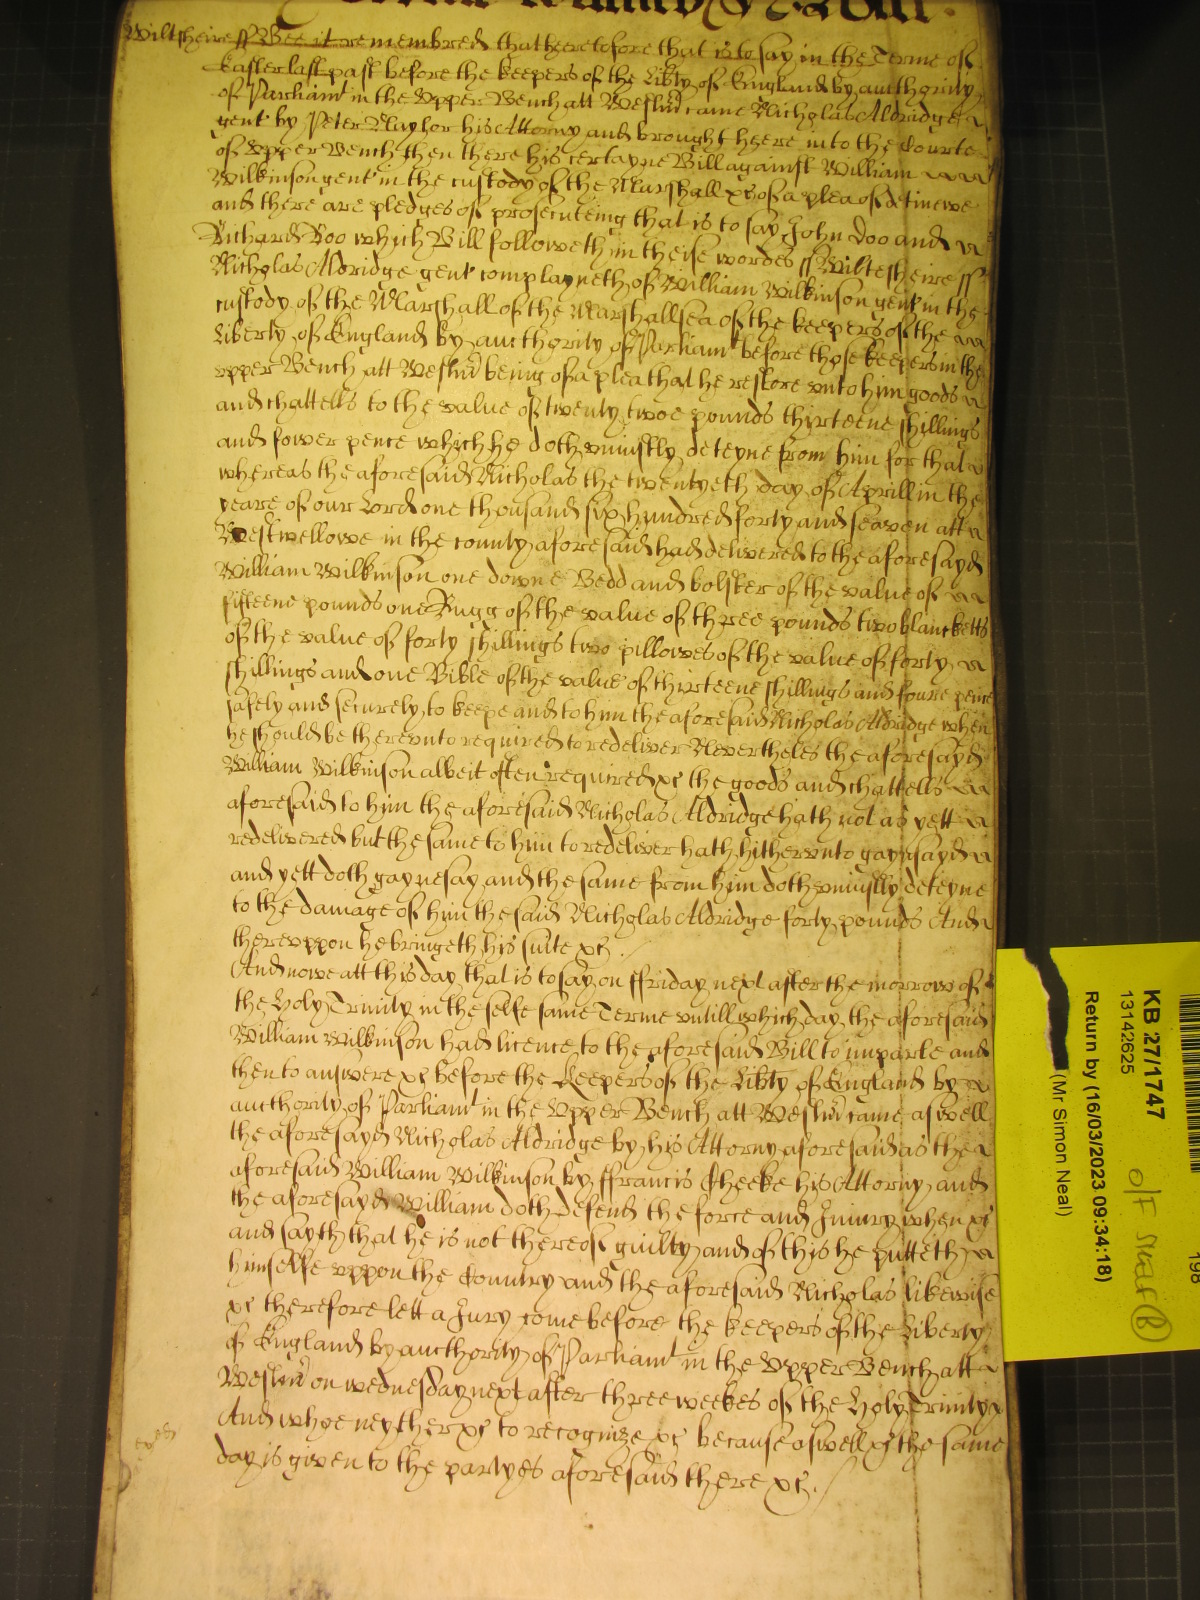 Wiltsheire ss Bee it remembred that heretofore that is to say in the Terme of
Easter last past before the keepers of the Libty of England by aucthority
of Parliamt in the Upper Bench att Westm̃ came Nicholas Aldridge
gent by Peter Naylor his Attorny and brought heere into the Courte
of Upper Bench then there his certayne Bill against William
Wilkinson gent in the custody of the Marshall &c of a plea of detinewe
and there are pledges of prosecuteing that is to say John Doo and
Richard Roo which Bill followeth in theise wordes ss Wiltesheire ss
Nicholas Aldridge gent complayneth of William Wilkinson gent in the
custody of the Marshall of the Marshallsea of the keepers of the
Liberty of England by aucthority of Parliamt before those keepers in the
upper Bench att Westm̃ being of a plea that he restore unto him goods
and chattells to the value of twenty twoe pounds thirteene shillings
and fower pence which he doth uniustly deteyne from him for that
whereas the aforesaid Nicholas the twentyeth day of Aprill in the
yeare of our Lord one thousand six hundred forty and seaven att
Westwellowe in the county aforesaid had delivered to the aforesayd
William Wilkinson one downe Bedd and bolster of the value of
fifteene pounds one Rugg of the value of three pounds two blancketts
of the value of forty shillings two pillowes of the value of forty
shillings and one Bible of the value of thirteene shillings and foure pence
safely and securely to keepe and to him the aforesaid Nicholas Aldridge when
he should be thereunto required to redeliver Nevertheles the aforesayd
William Wilkinson albeit often required &c the goods and chattells
aforesaid to him the aforesaid Nicholas Aldridge hath not as yett
redelivered but the same to him to redeliver hath hitherunto gaynsayd
and yett doth gaynesay and the same from him doth uniustly deteyne
to the damage of him the said Nicholas Aldridge forty pounds And
thereuppon he bringeth his suite &c.
And nowe att this day that is to say on ffriday next after the morrow of
the Holy Trinity in the selfe same Terme untill which day the aforesaid
William Wilkinson had licence to the aforesaid Bill to imparle and
then to answere &c before the Keepers of the Libty of England by
aucthority of Parliamt in the Upper Bench att Westm̃ came aswell
the aforesayd Nicholas Aldridge by his Attorny aforesaid as the
aforesaid William Wilkinson by ffrancis Cheeke his Attorny and
the aforesayd William doth defend the force and Iniury when &c
and sayth that he is not thereof guilty and of this he putteth
himselfe uppon the Country and the aforesaid Nicholas likewise
&c therefore lett a Jury come before the keepers of the Liberty
of England by aucthority of Parliamt in the Upper Bench att
Westm̃ on wednesday next after three weekes of the Holy Trinity
And whoe neyther &c to recognize &c because aswell &c the same
day is given to the partyes aforesaid there &c.
KB 27/1747
13142625
Return by (16/03/2023 09:34:18)
(Mr Simon Neal)
198